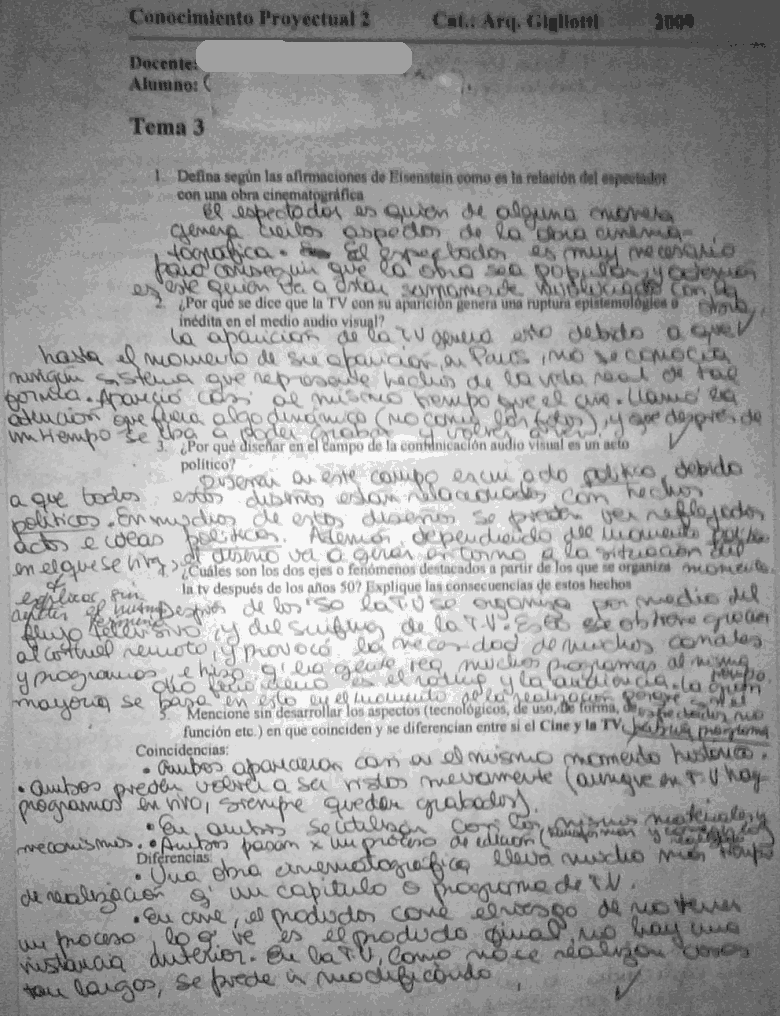 Conocimiento Proyectual 2 Cat.: Arq. Gigliotti 2009
Docente:
Alumno: (
Tema 3
1. Defina según las afirmaciones de Eisenstein como es la relación del espectador
con una obra cinematográfica
El espectador es quien de alguna manera
genera ciertos aspectos de la obra cinema-
tografica. El espectador es muy necesario
para conseguir que la obra sea popular, y ademas
es este quien va a estar sumamente con la
2. ¿Por qué se dice que la TV con su aparición genera una ruptura epistemológica o obra.
inédita en el medio audio visual?
La aparicion de la TV genera esto debido a que
hasta el momento de su aparicion, en Paris, no se conocia
ningun sistema que represente hechos de la vida real de tal
forma. Aparecio casi al mismo tiempo que el cine. Llamo la
atencion que fuera algo dinámico (no como las fotos), y que despues de
un tiempo se iba a poder grabar y volver a ver.
3. ¿Por qué diseñar en el campo de la comunicación audio visual es un acto
político?
Diseñar en este campo es un acto politico, debido
a que todos estos diseños estan relacionados con hechos
politicos. En muchos de estos diseños se pueden ver reflejados
actos e ideas politicas. Ademas dependiendo del momento politico
en el que se viva, el diseño va a girar en torno a la situacion del
4. ¿Cuáles son los dos ejes o fenómenos destacados a partir de los que se organiza momento.
la tv después de los años 50? Explique las consecuencias de estos hechos
explicar sin
Despues de los '50 la TV se organiza por medio del
flujo televisivo, y del surfing de la TV. Esto se obtiene gracias
al control remoto, y provocó la necesidad de muchos canales
y programas e hizo q' la gente vea muchos programas al mismo tiempo.
Otro fenomeno es el rating y la audiencia. La gran
mayoria se basa en esto en el momento de la realizacion porque sin el
5. Mencione sin desarrollar los aspectos (tecnológicos, de uso, de forma, de espectador no
función etc.) en que coinciden y se diferencian entre si el Cine y la TV. habria programa
Coincidencias:
• Ambos aparecieron casi en el mismo momento historico.
• Ambos pueden volver a ser vistos nuevamente (aunque en TV hay
programas en vivo, siempre quedan grabados).
• En ambos se utilizan casi los mismos materiales y
mecanismos. • Ambos pasan x un proceso de edicion
Diferencias:
• Una obra cinematografica lleva mucho mas tiempo
de realizacion q' un capitulo o programa de TV.
• En cine, el productor corre el riesgo de no tener
un proceso, lo q' ve es el producto final, no hay una
instancia anterior. En la TV, como no se realizan cosas
tan largas, se puede ir modificando.